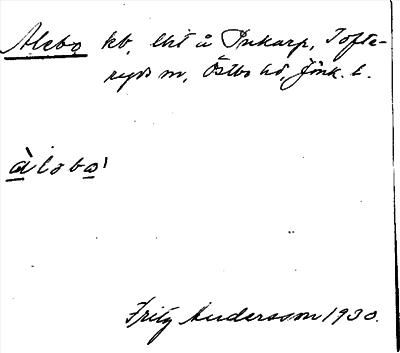 Alebo kb, lht å Pukarp, Tofte-
ryds sn, Östbo hd, Jönk. l.
àlobo'
Fritz Andersson 1930.